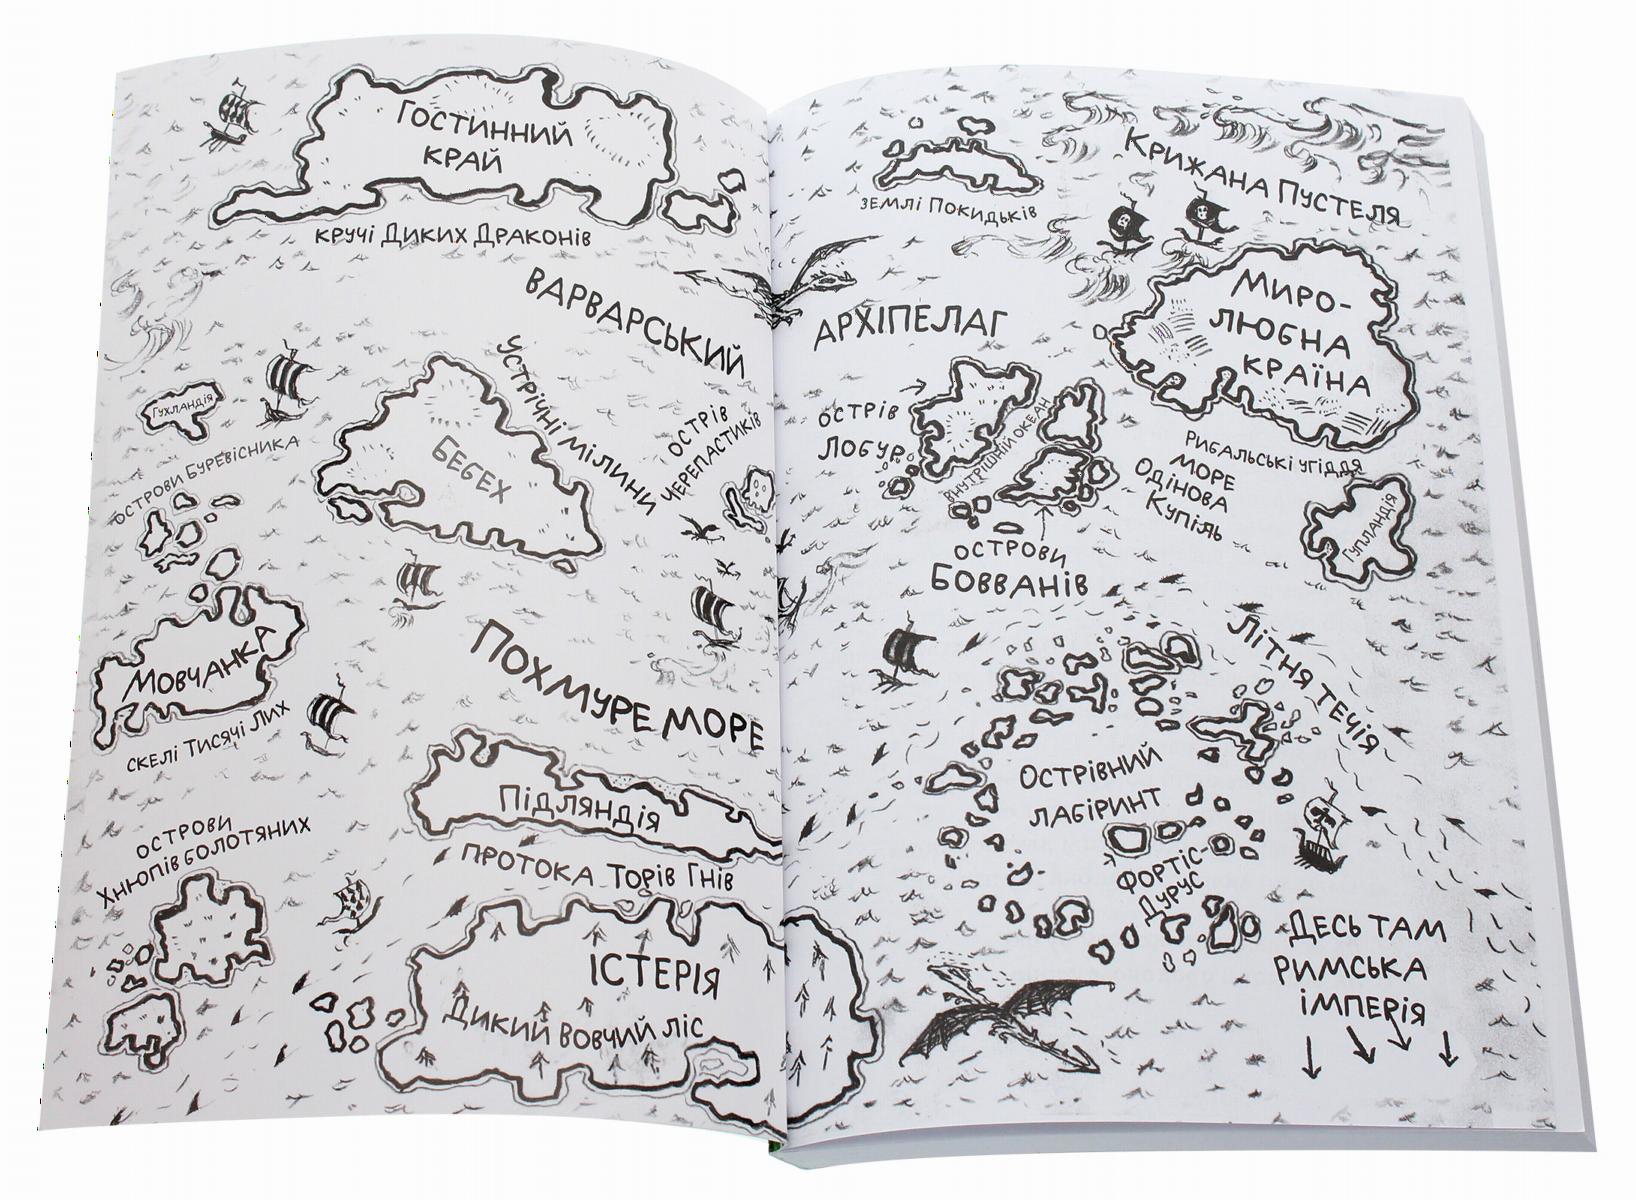 Гостинний
край
кручі Диких Драконів
Варварський
Устрічні мілини
Острів
Черепастиків
Гухландія
острови Буревісника
Бебех
Мовчанка
скелі Тисячі Лих
Похмуре море
Підляндія
протока Торів Гнів
острови
Хнюпів болотяних
Істерія
Дикий вовчий ліс
Крижана Пустеля
землі Покидьків
Миро-
любна
країна
Архіпелаг
острів
Лобур
внутрішній океан
рибальські угіддя
море
Одінова
Купіль
Гупландія
острови
Бовванів
Літня течія
Острівний
лабіринт
Фортіс-
Дурус
Десь там
Римська
імперія